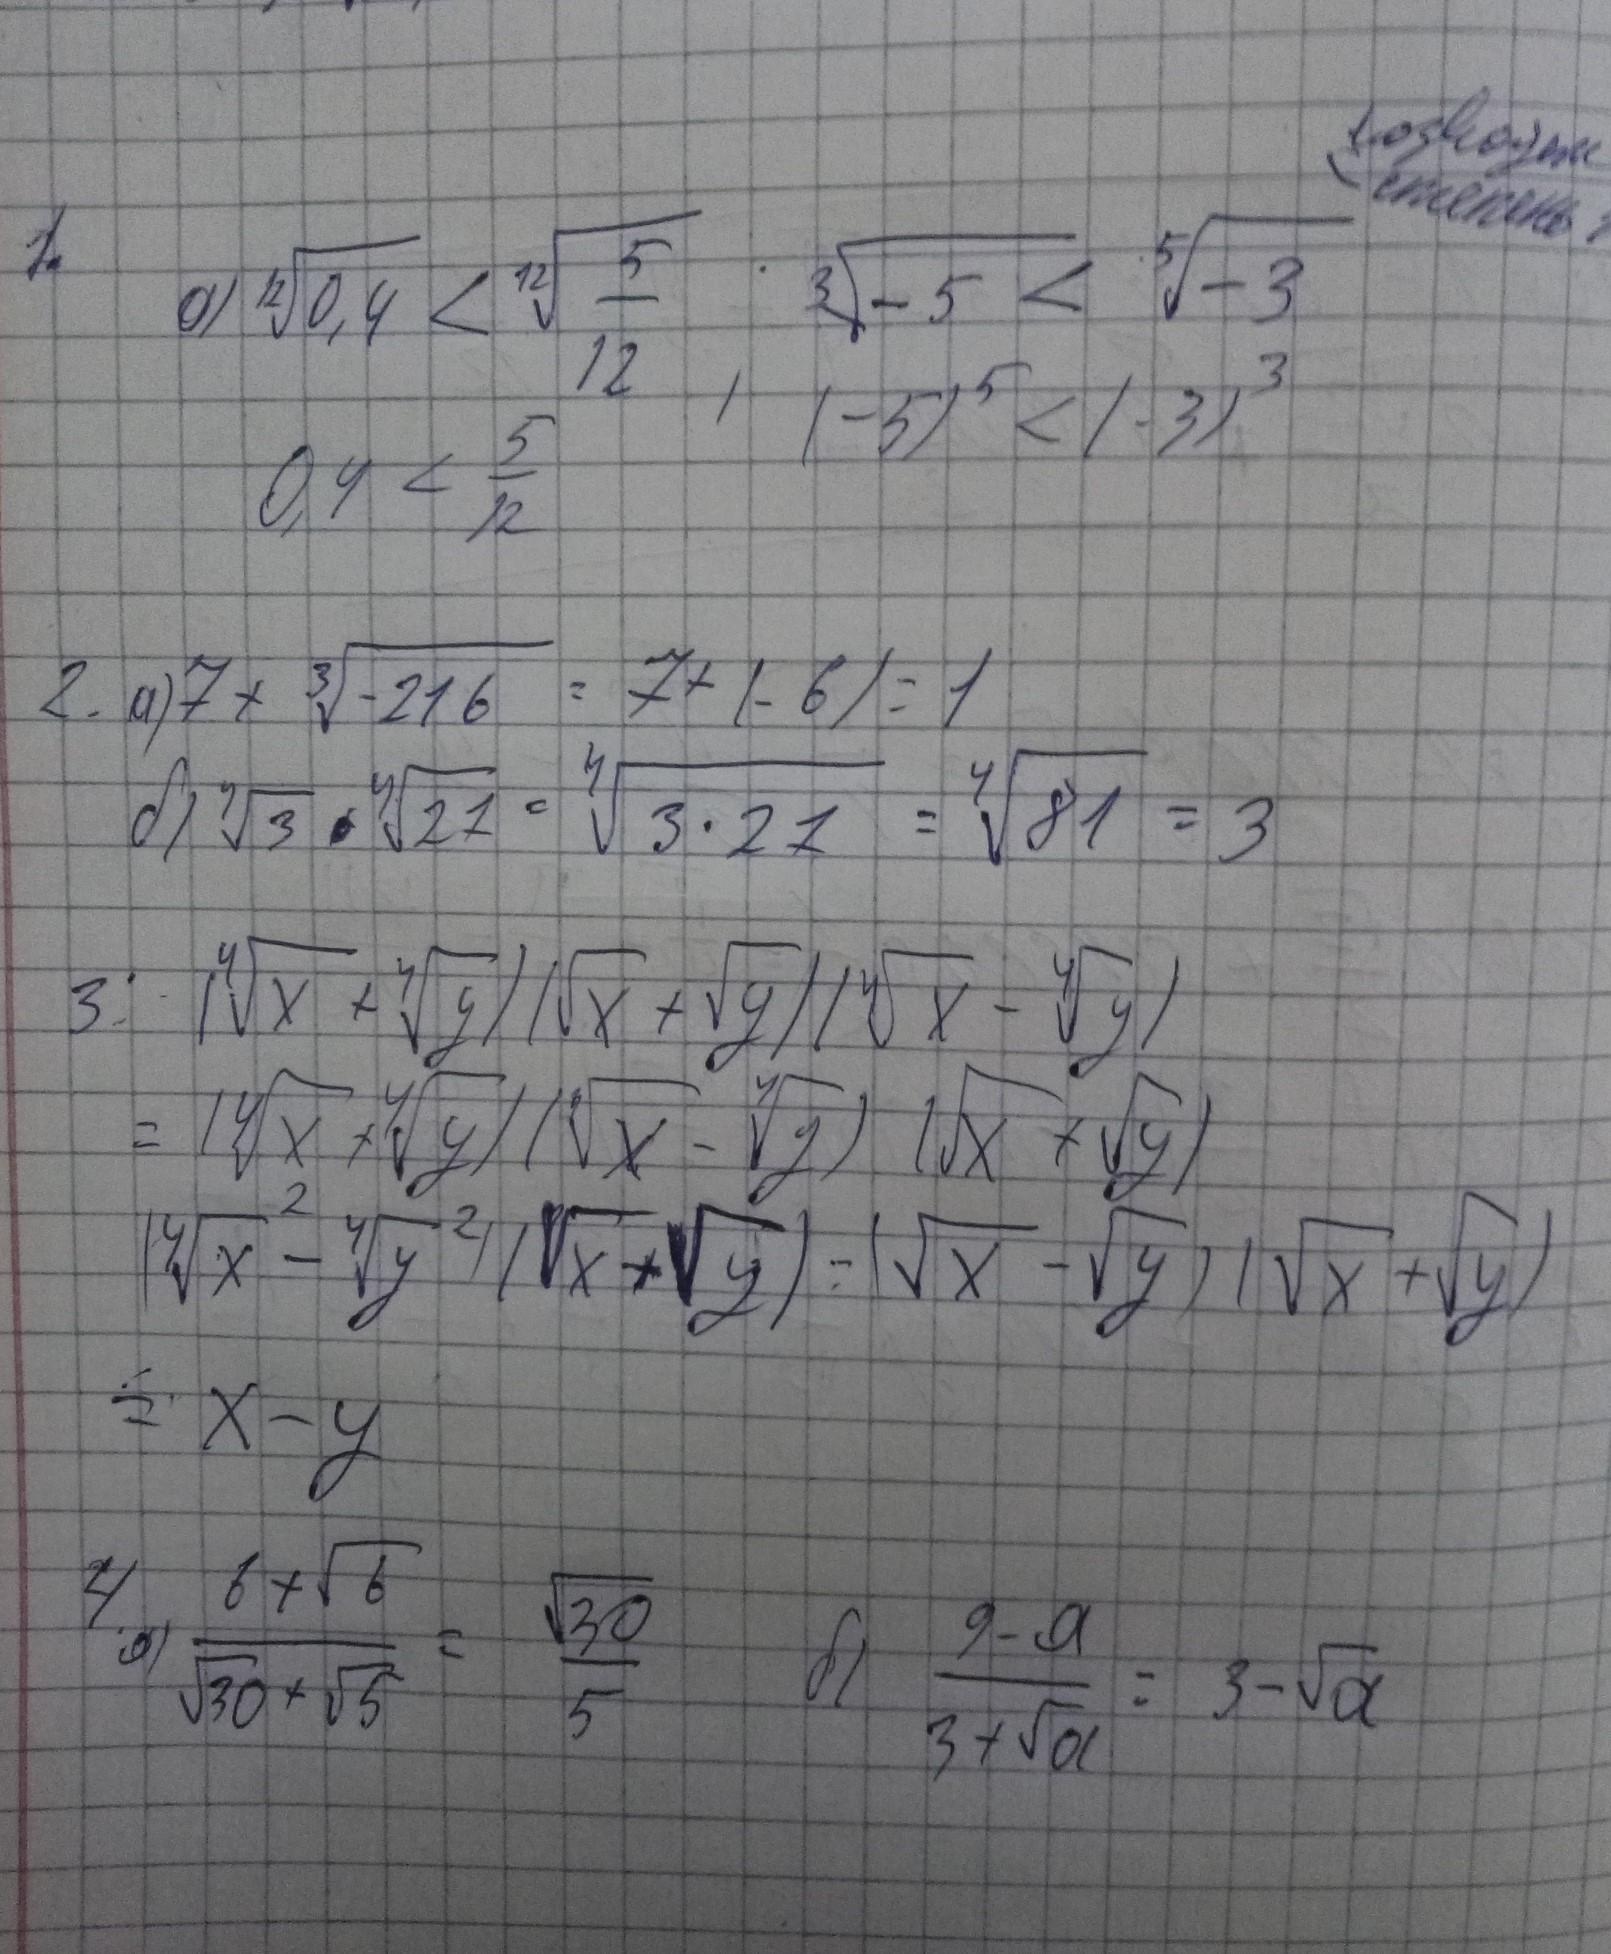 Возводим
степень
1.
а) ¹²√0,4 < ¹²√(5/12) , ³√-5 < ⁵√-3
0,4 < 5/12 (-5)⁵ < (-3)³
2. а) 7 + ³√-216 = 7 + (-6) = 1
б) ⁴√3 · ⁴√27 = ⁴√3·27 = ⁴√81 = 3
3. (⁴√x + ⁴√y)(√x + √y)(⁴√x - ⁴√y)
= (⁴√x + ⁴√y)(⁴√x - ⁴√y) (√x + √y)
(⁴√x² - ⁴√y²)(√x + √y) = (√x - √y)(√x + √y)
= x - y
4. а) (6+√6)/(√30+√5) = √30/5 б) (9-a)/(3+√a) = 3-√a